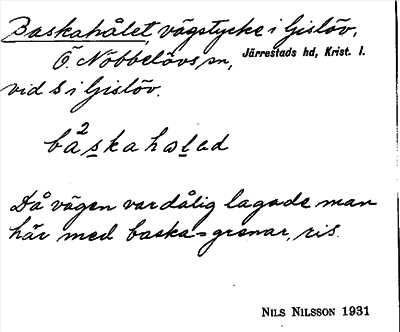 Baskahålet, vägstycke i Gislöv,
Ö. Nöbbelövs sn, Järrestads hd, Krist. l.
vid 8 i Gislöv.
bå²skahɷlad
Då vägen var dålig lagade man
här med baska-grenar, ris.
NILS NILSSON 1931